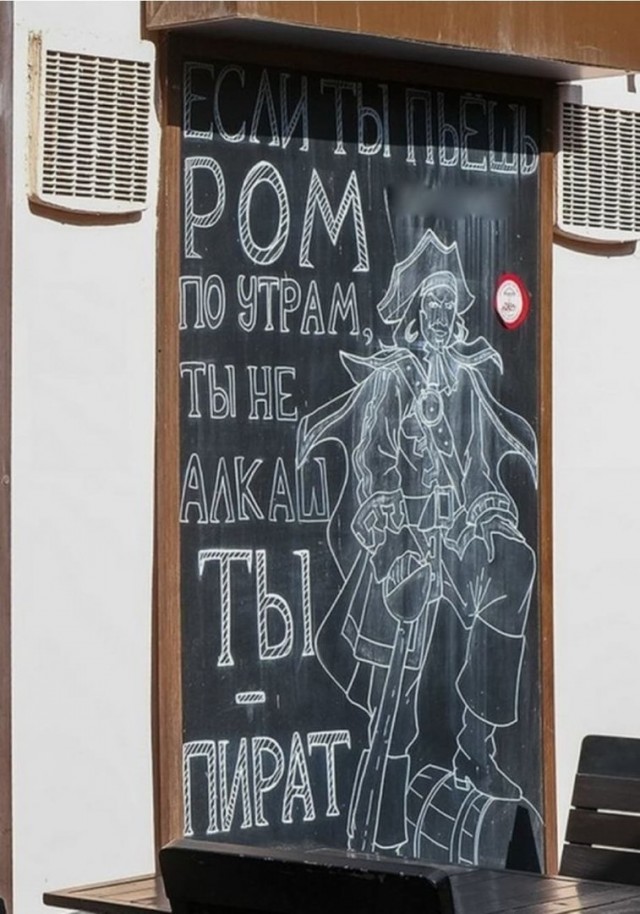 ЕСЛИ ТЫ ПЬЁШЬ
РОМ
ПО УТРАМ,
ТЫ НЕ
АЛКАШ
ТЫ
-
ПИРАТ